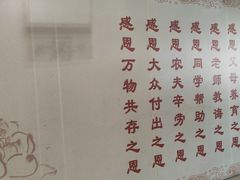 感恩父母养育之恩
感恩老师教诲之恩
感恩同学帮助之恩
感恩农夫辛劳之恩
感恩大众付出之恩
感恩万物共存之恩